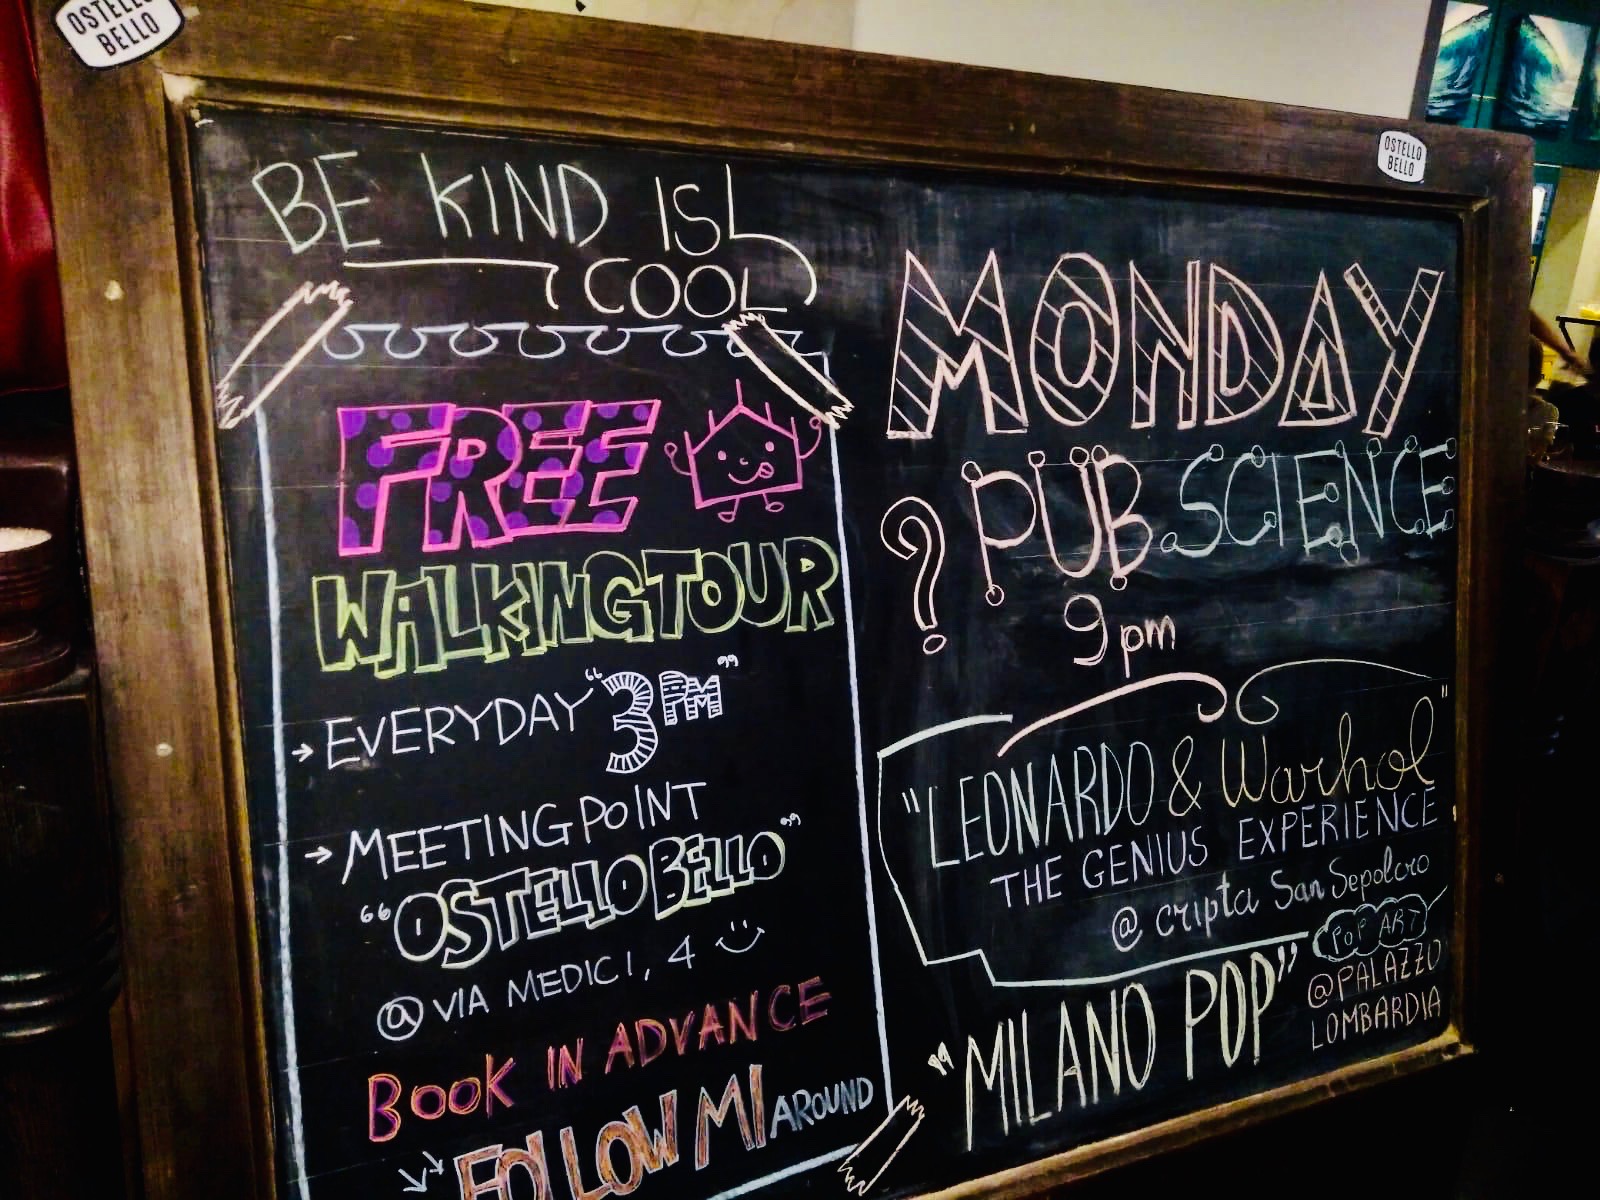 OSTELLO
BELLO
OSTELLO
BELLO
BE KIND IS
COOL
FREE
WALKING TOUR
→ EVERYDAY "3PM"
→ MEETING POINT
"OSTELLO BELLO"
@ VIA MEDICI, 4
BOOK IN ADVANCE
FOLLOW MI AROUND
MONDAY
? PUB SCIENCE
9 pm
"LEONARDO & Warhol"
THE GENIUS EXPERIENCE
@ cripta San Sepolcro
"MILANO POP"
POP ART
@PALAZZO
LOMBARDIA